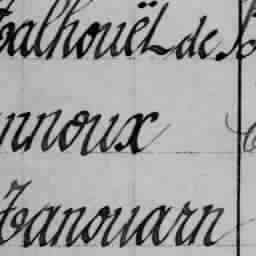 Talhouët de
nnoux
Tanouarn